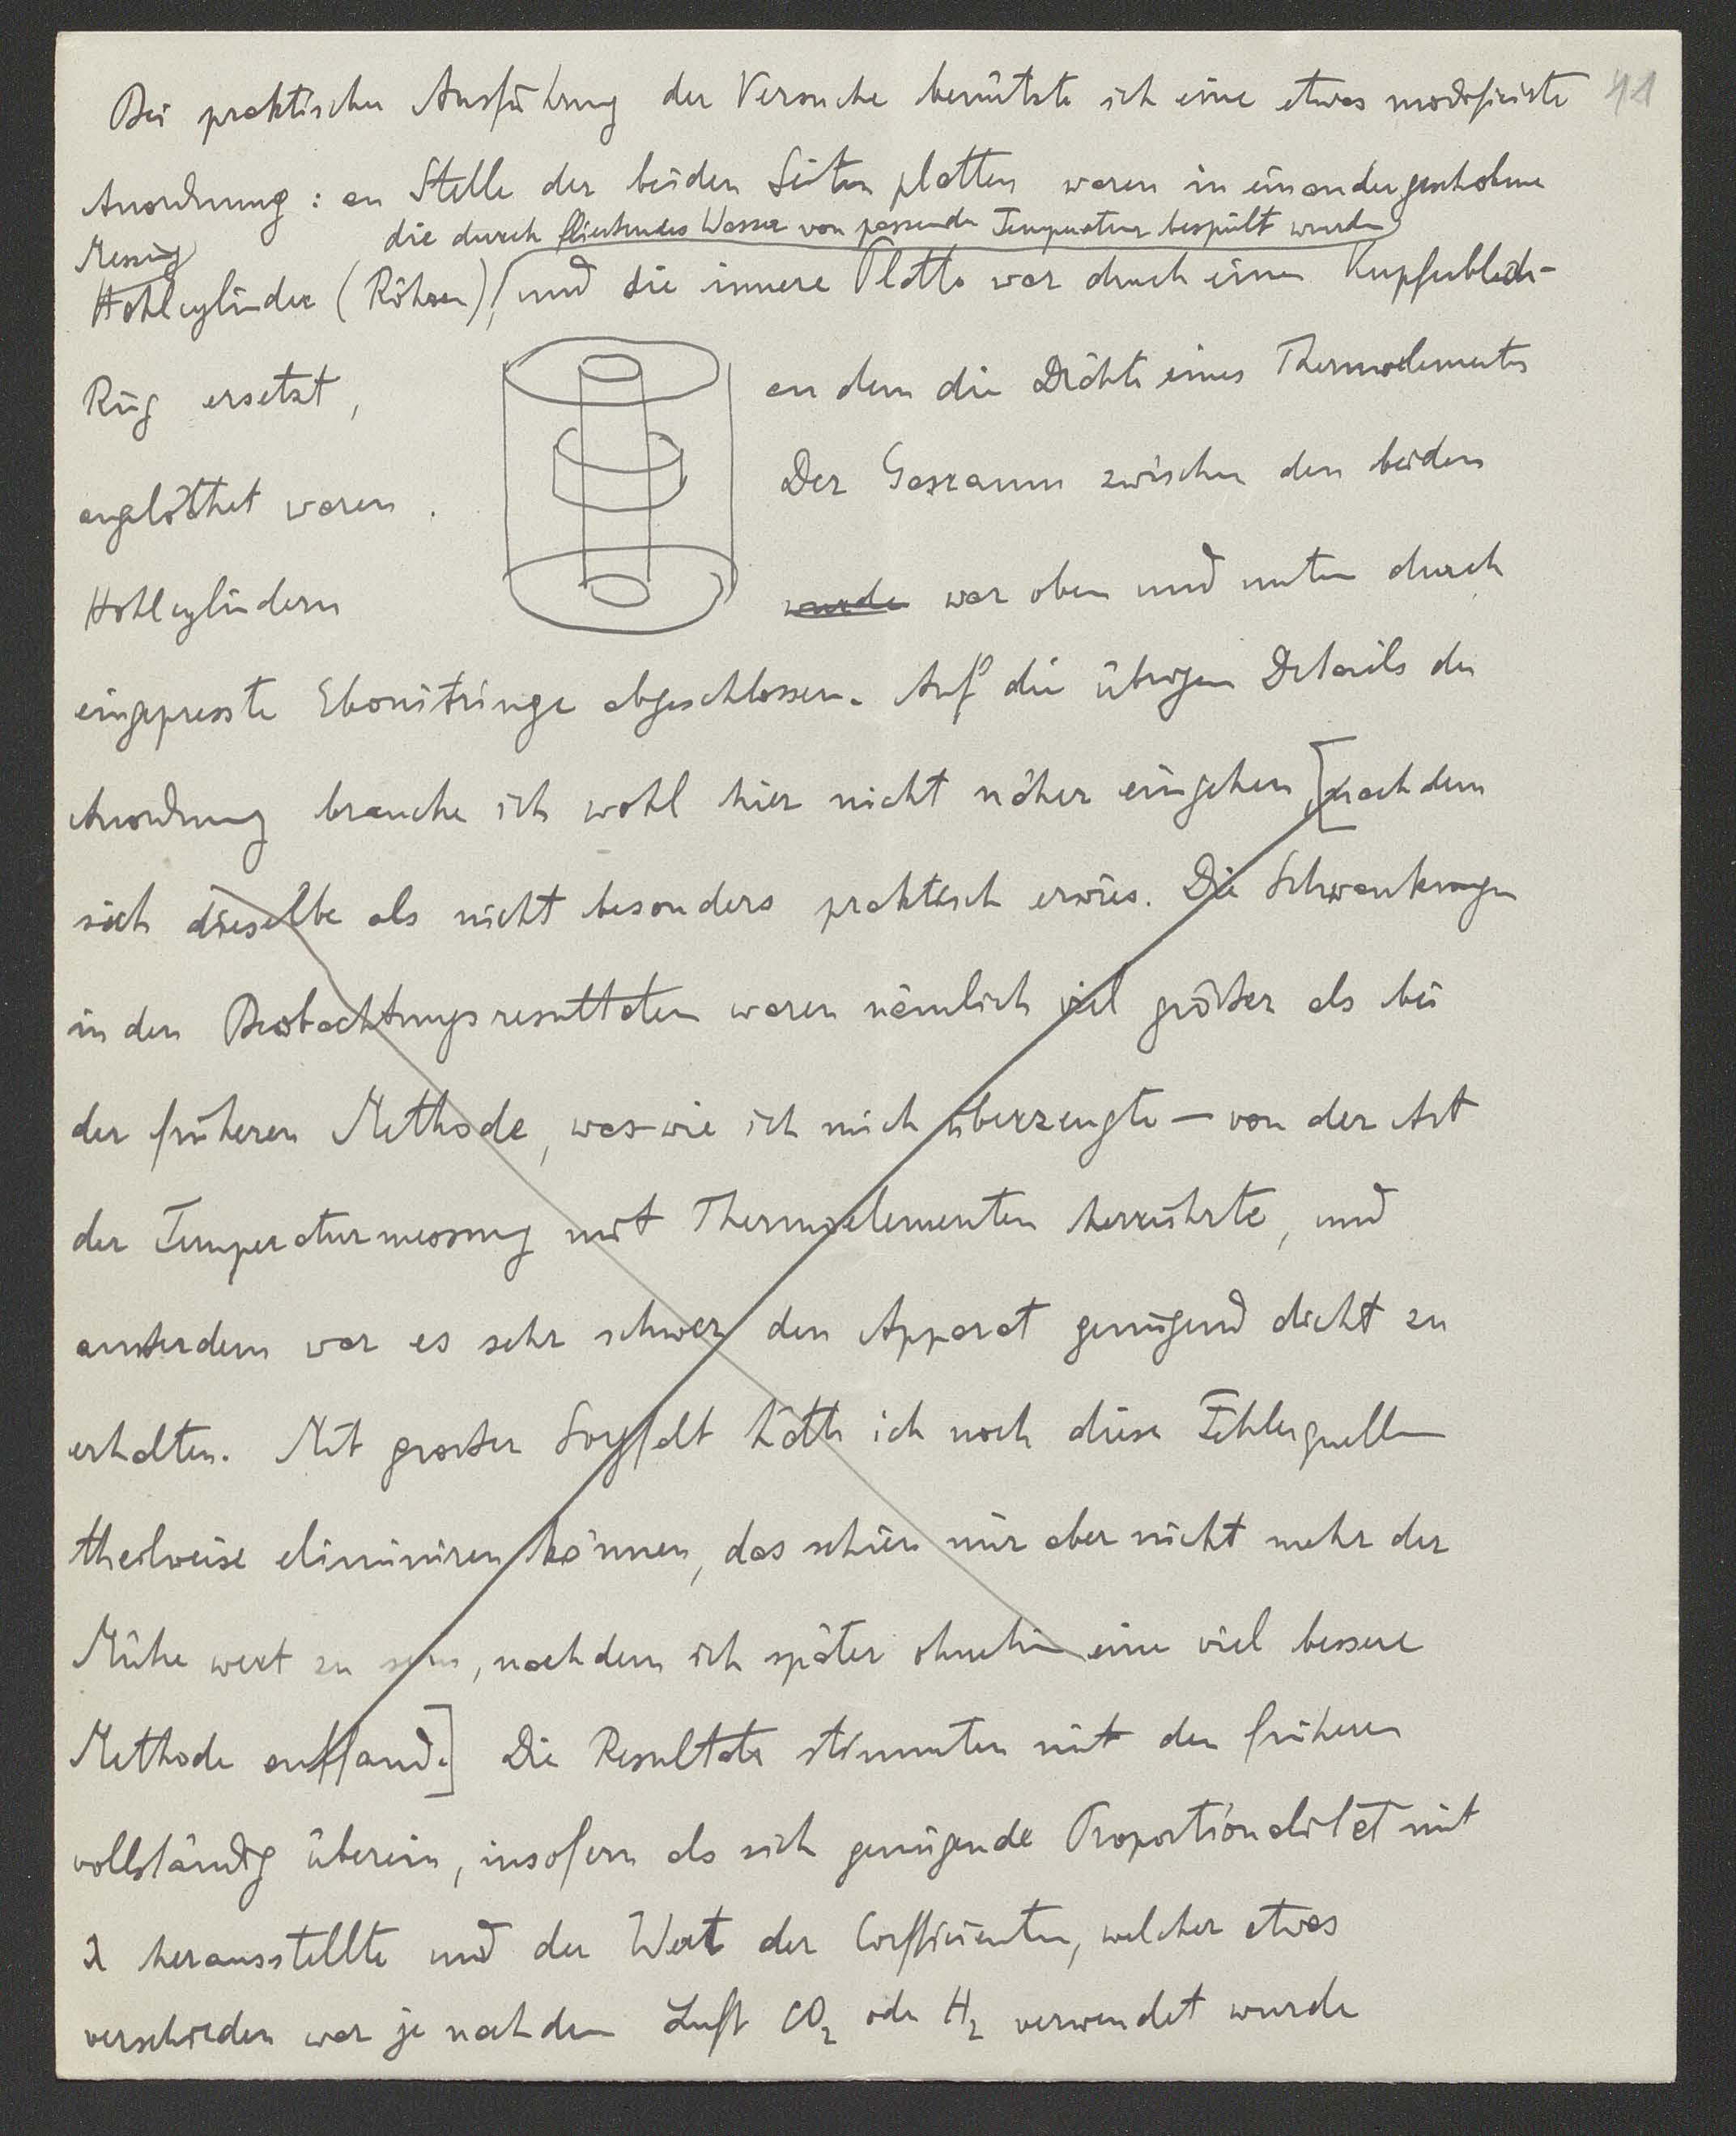 41
Bei praktischer Ausführung der Versuche benützte ich eine etwas modificirte
Anordnung: an Stelle der beiden Seitenplatten waren in einandergeschobene
die durch fließendes Wasser von passender Temperatur bespült wurden
Messing
Hohlcylinder (Röhren), und die innere Platte war durch einen Kupferblech-
Ring ersetzt, an dem die Drähte eines Thermoelementes
angelöthet waren. Der Gasraum zwischen den beiden
Hohlcylindern wurde war oben und unten durch
eingepresste Ebonitringe abgeschlossen. Auf die übrigen Details der
Anordnung brauche ich wohl hier nicht näher eingehen [nachdem
sich dieselbe als nicht besonders praktisch erwies. Die Schwankungen
in den Beobachtungsresultaten waren nämlich viel größer als bei
der früheren Methode, was – wie ich mich überzeugte – von der Art
der Temperaturmessung mit Thermoelementen herrührte, und
außerdem war es sehr schwer den Apparat genügend dicht zu
erhalten. Mit großer Sorgfalt hätte ich noch diese Fehlerquellen
theilweise eliminiren können, das schien mir aber nicht mehr der
Mühe wert zu sein, nachdem ich später ohnehin eine viel bessere
Methode auffand.] Die Resultate stimmten mit den früheren
vollständig überein, insofern als sich genügende Proportionalität mit
λ herausstellte und der Wert der Coefficienten, welcher etwas
verschieden war je nachdem Luft CO₂ oder H₂ verwendet wurde